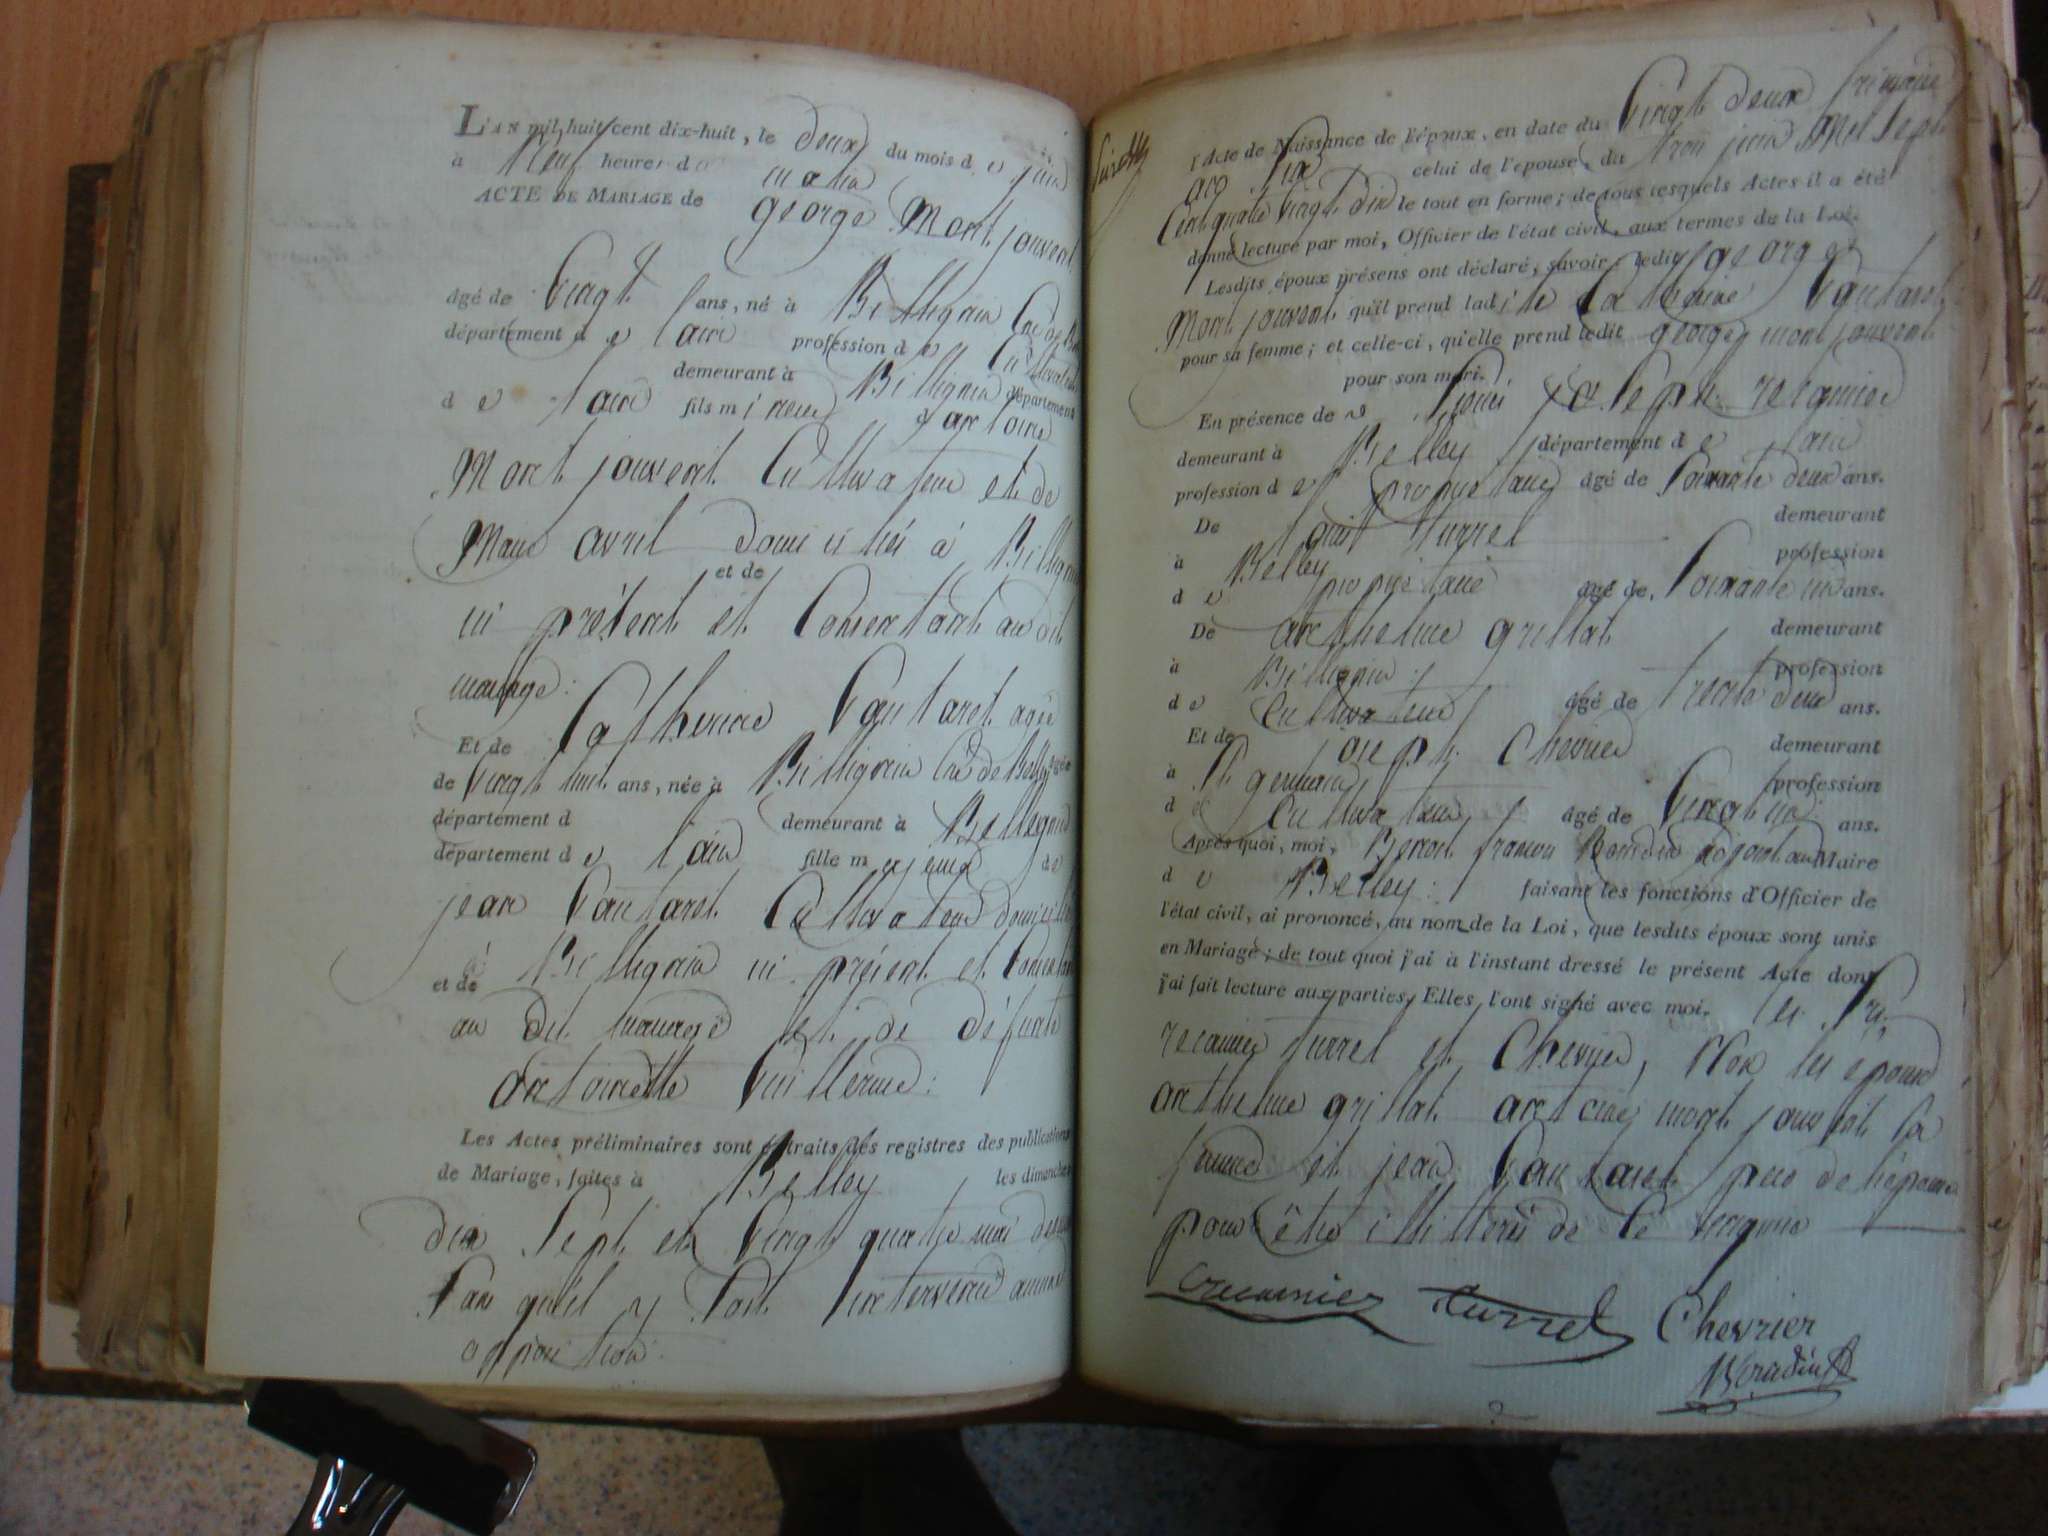 L'AN mil huit cent dix-huit, le deux du mois d e juin
à neuf heures d u matin
ACTE DE MARIAGE de george Montjouvent
âgé de Vingt ans, né à Billignin Cne de
département d e lain profession d e Cultivateur
demeurant à Billignin département
d e lain fils mineur d'antoine
Montjouvent Cultivateur et de
Marie avril domiciliés à Billignin
et de
ici présent et Consentant au dit
mariage:
Et de Catherine Vautaret agée
de Vingt huit ans, née à Billignin Cne de Belley
département d demeurant à Bellignin
département d e lain fille majeure de
jean Vautaret Cultivateur domicilié
et de à Billignin ici présent et Consentant
au dit mariage et de défunte
antoinette Vuillerme:
Les Actes préliminaires sont extraits des registres des publications
de Mariage, faites à Belley les dimanches
dix Sept et Vingt quatre mai
San quil y Soit intervenu aucune
opposition.
l'Acte de Naissance de l'époux, en date du Vingt deux frimaire
an Six celui de l'epouse, du trois juin Mil Sept
Cent quatre Vingt Dix le tout en forme; de tous lesquels Actes il a été
donné lecture par moi, Officier de l'état civil, aux termes de la Loi.
Lesdits époux présens ont déclaré, savoir, ledit george
Montjouvent qu'il prend ladite Catherine Vautaret
pour sa femme; et celle-ci, qu'elle prend ledit george montjouvent
pour son mari.
En présence de Louis joseph recamier
demeurant à Belley département d e lain
profession d e propriétaire âgé de Soixante deux ans.
De Turrel demeurant
à Belley profession
d e propriétaire âgé de Soixante un ans.
De anthelme grillat demeurant
à Billignin profession
d e Cultivateur âgé de trente deux ans.
Et de joseph Chevrier demeurant
à St germain profession
d e Cultivateur âgé de Vingt un ans.
Après quoi, moi, Benoit françois adjoint au Maire
d e Belley: faisant les fonctions d'Officier de
l'état civil, ai prononcé, au nom de la Loi, que lesdits époux sont unis
en Mariage; de tout quoi j'ai à l'instant dressé le présent Acte dont
j'ai fait lecture aux parties, Elles l'ont signé avec moi. les Srs
recamier turrel et Chevrier, Non les époux
anthelme grillat antoine montjouvent sa
femme et jean Vautaret pere de l'épouse
pour être illitterés de Ce requis
recamier Turrel Chevrier